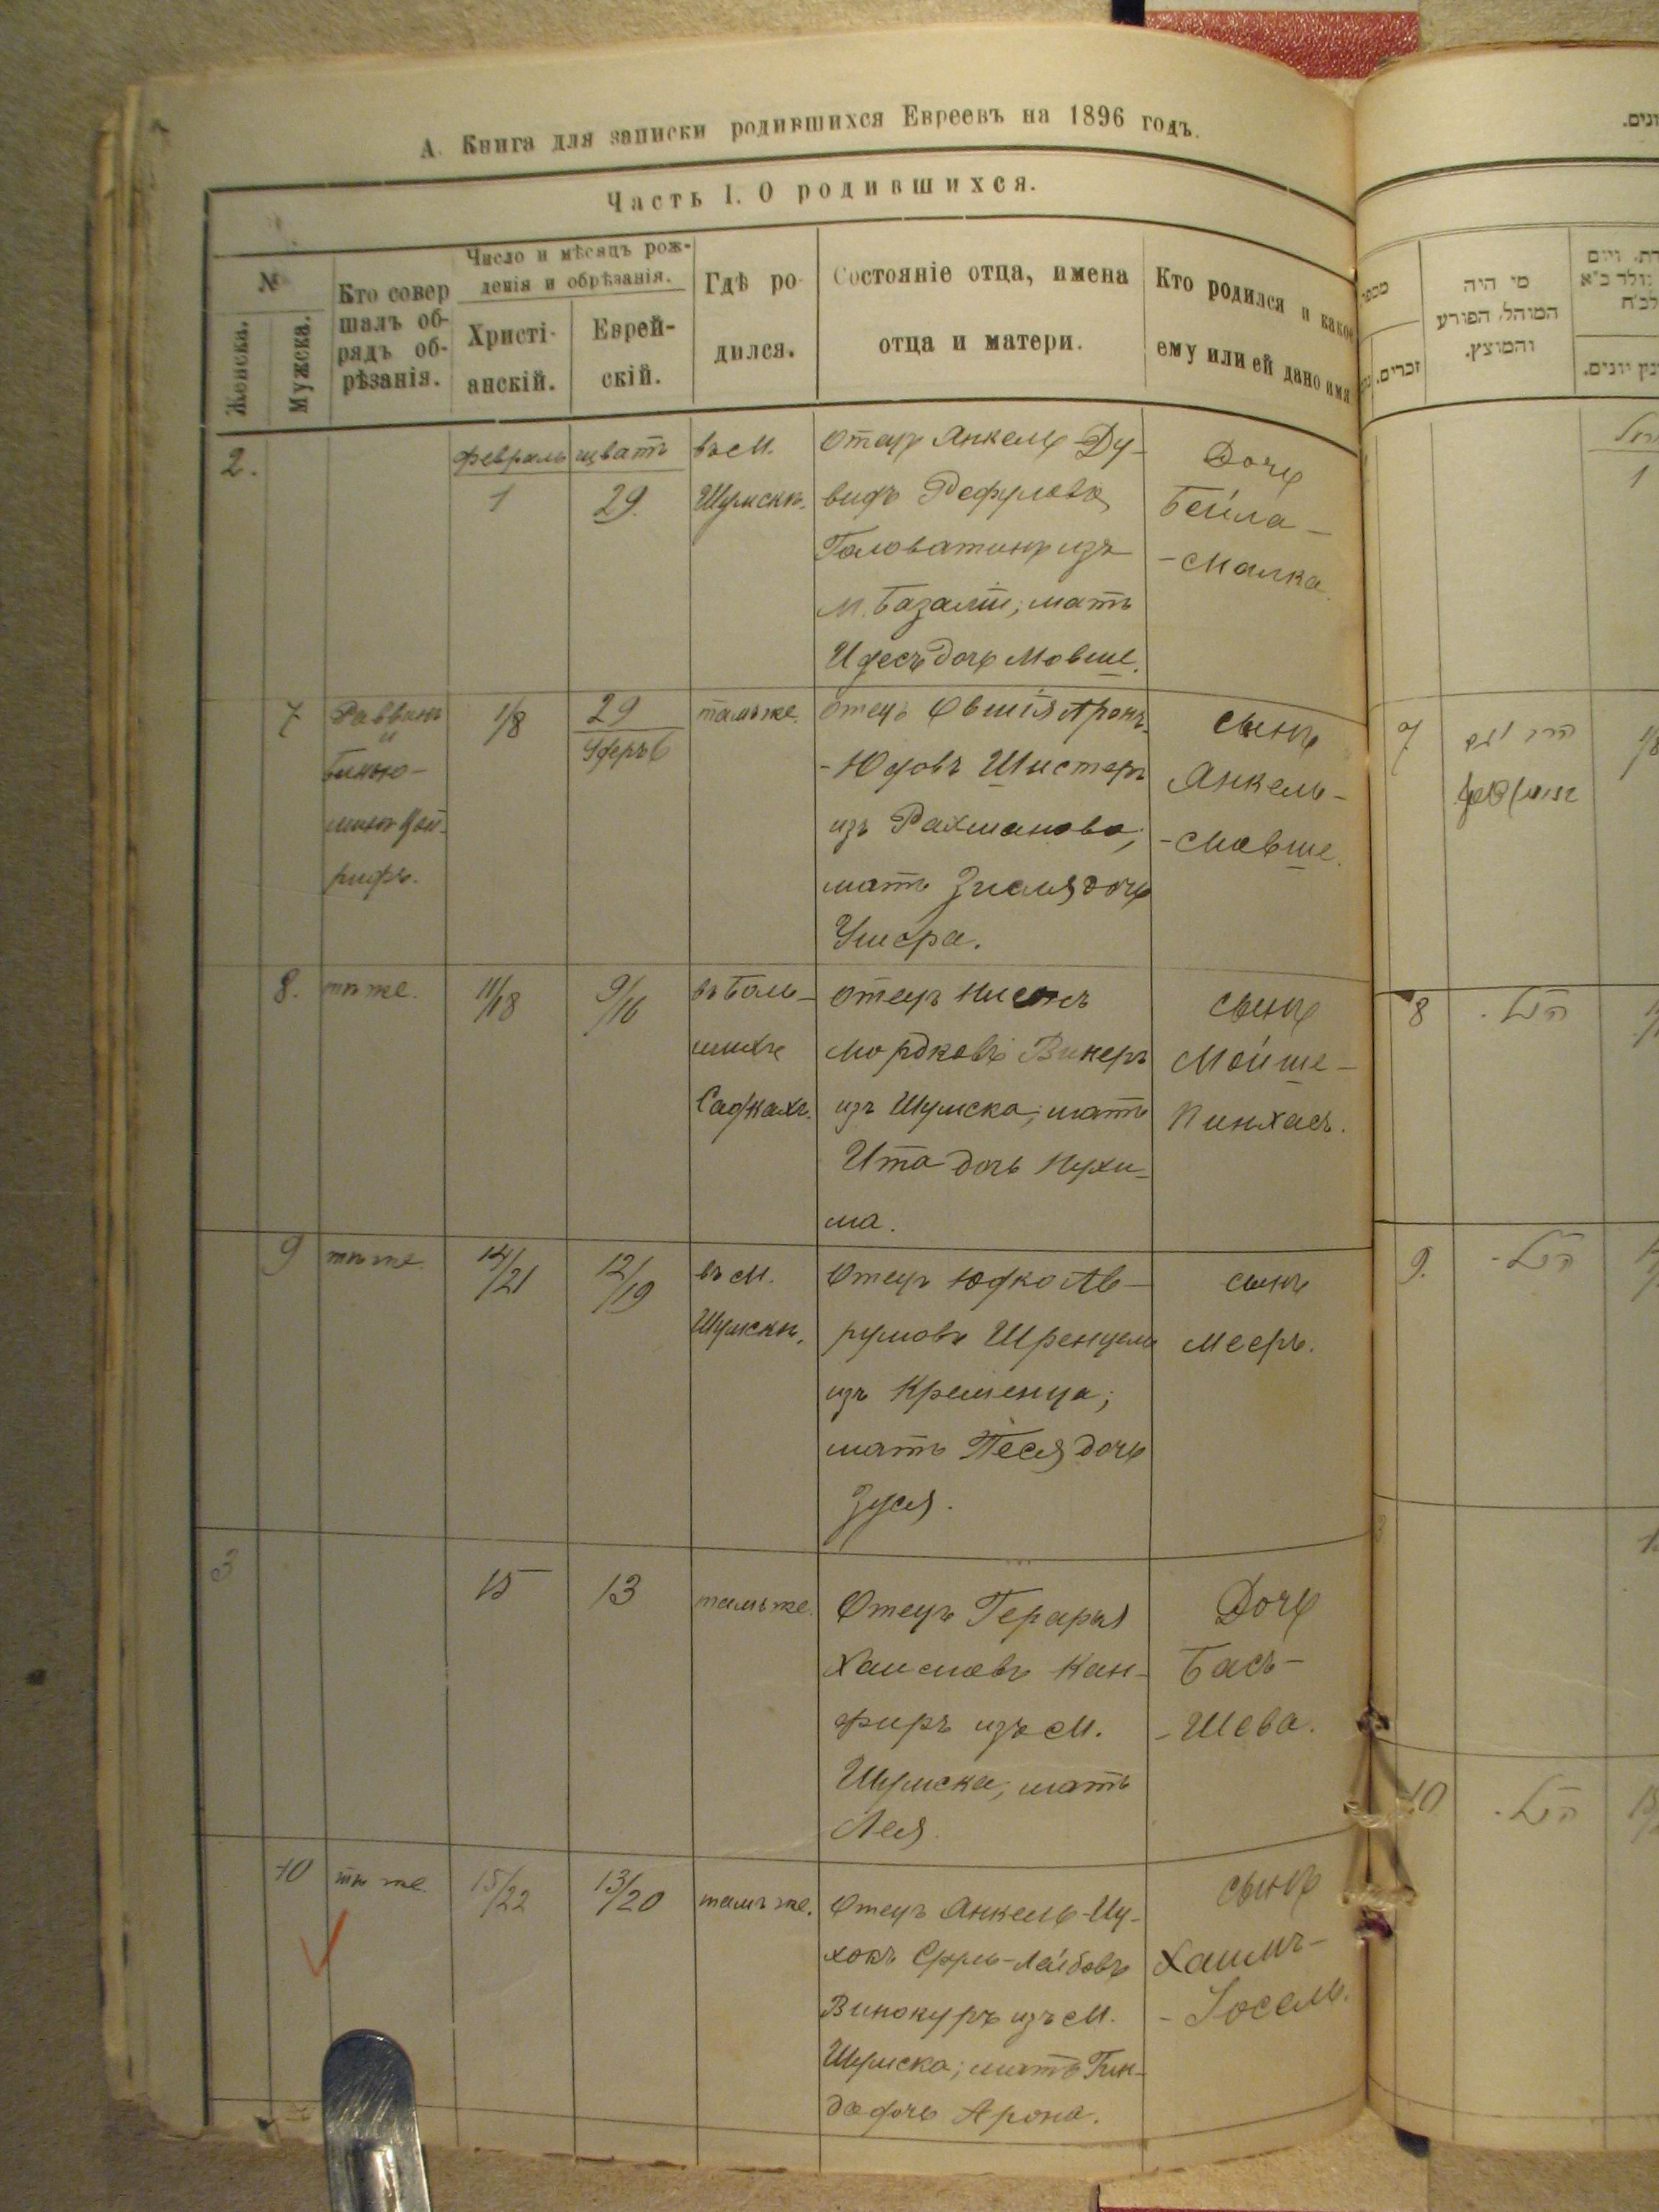 А. Книга для записки родившихся Евреевъ на 1896 годъ.
Часть I. О родившихся.
№
Женска.
Мужска.
Кто совер
шалъ об-
рядъ об-
рѣзанія.
Число и мѣсяцъ рож-
денія и обрѣзанія.
Христі-
анскій.
Еврей-
скій.
Гдѣ ро-
дился.
Состояніе отца, имена
отца и матери.
Кто родился и какое
ему или ей дано имя
2.
февраль
1
шватъ
29.
въ М.
Шумскѣ.
Отецъ Янкель-Ду-
видъ
Головатинъ изъ
м. Базаліи; мать
Идесъ дочь Мовше.
Дочь
Бейла-
-Малка.
7
Раввинъ
и
1/8
29
тамъ же.
отецъ Овшія Аронъ-
-Юдовъ Шистеръ
изъ Рахманова;
мать Зисля дочь
Ушера.
сынъ
Янкель-
-Мовше.
8.
тѣ же.
11/18
9/16
въ Боль-
шихъ
Садкахъ.
Отецъ Нисонъ
Мордковъ Винеръ
изъ Шумска; мать
Ита дочь Нухи-
ма.
сынъ
Мойше-
Пинхасъ.
9
тѣ же.
14/21
12/19
въ М.
Шумскѣ.
Отецъ Юдко Ав-
румовъ Шренцель
изъ Кременца;
мать Песя дочь
Зуся.
сынъ
Мееръ.
3
15
13
тамъ же.
Отецъ
Хаимовъ Кан-
фиръ изъ М.
Шумска, мать
Лея.
Дочь
Бась-
-Шева.
10
тѣ же.
15/22
13/20
тамъ же.
Отецъ Янкель-Иц-
хокъ Срулъ-Лейбовъ
Винокуръ изъ М.
Шумска; мать Гин-
да дочь Арона.
сынъ
Хаимъ-
-Іосель.
מי היה
המוהל, הפורע
והמוצץ.
זכרים.
1
7
8
9.
10